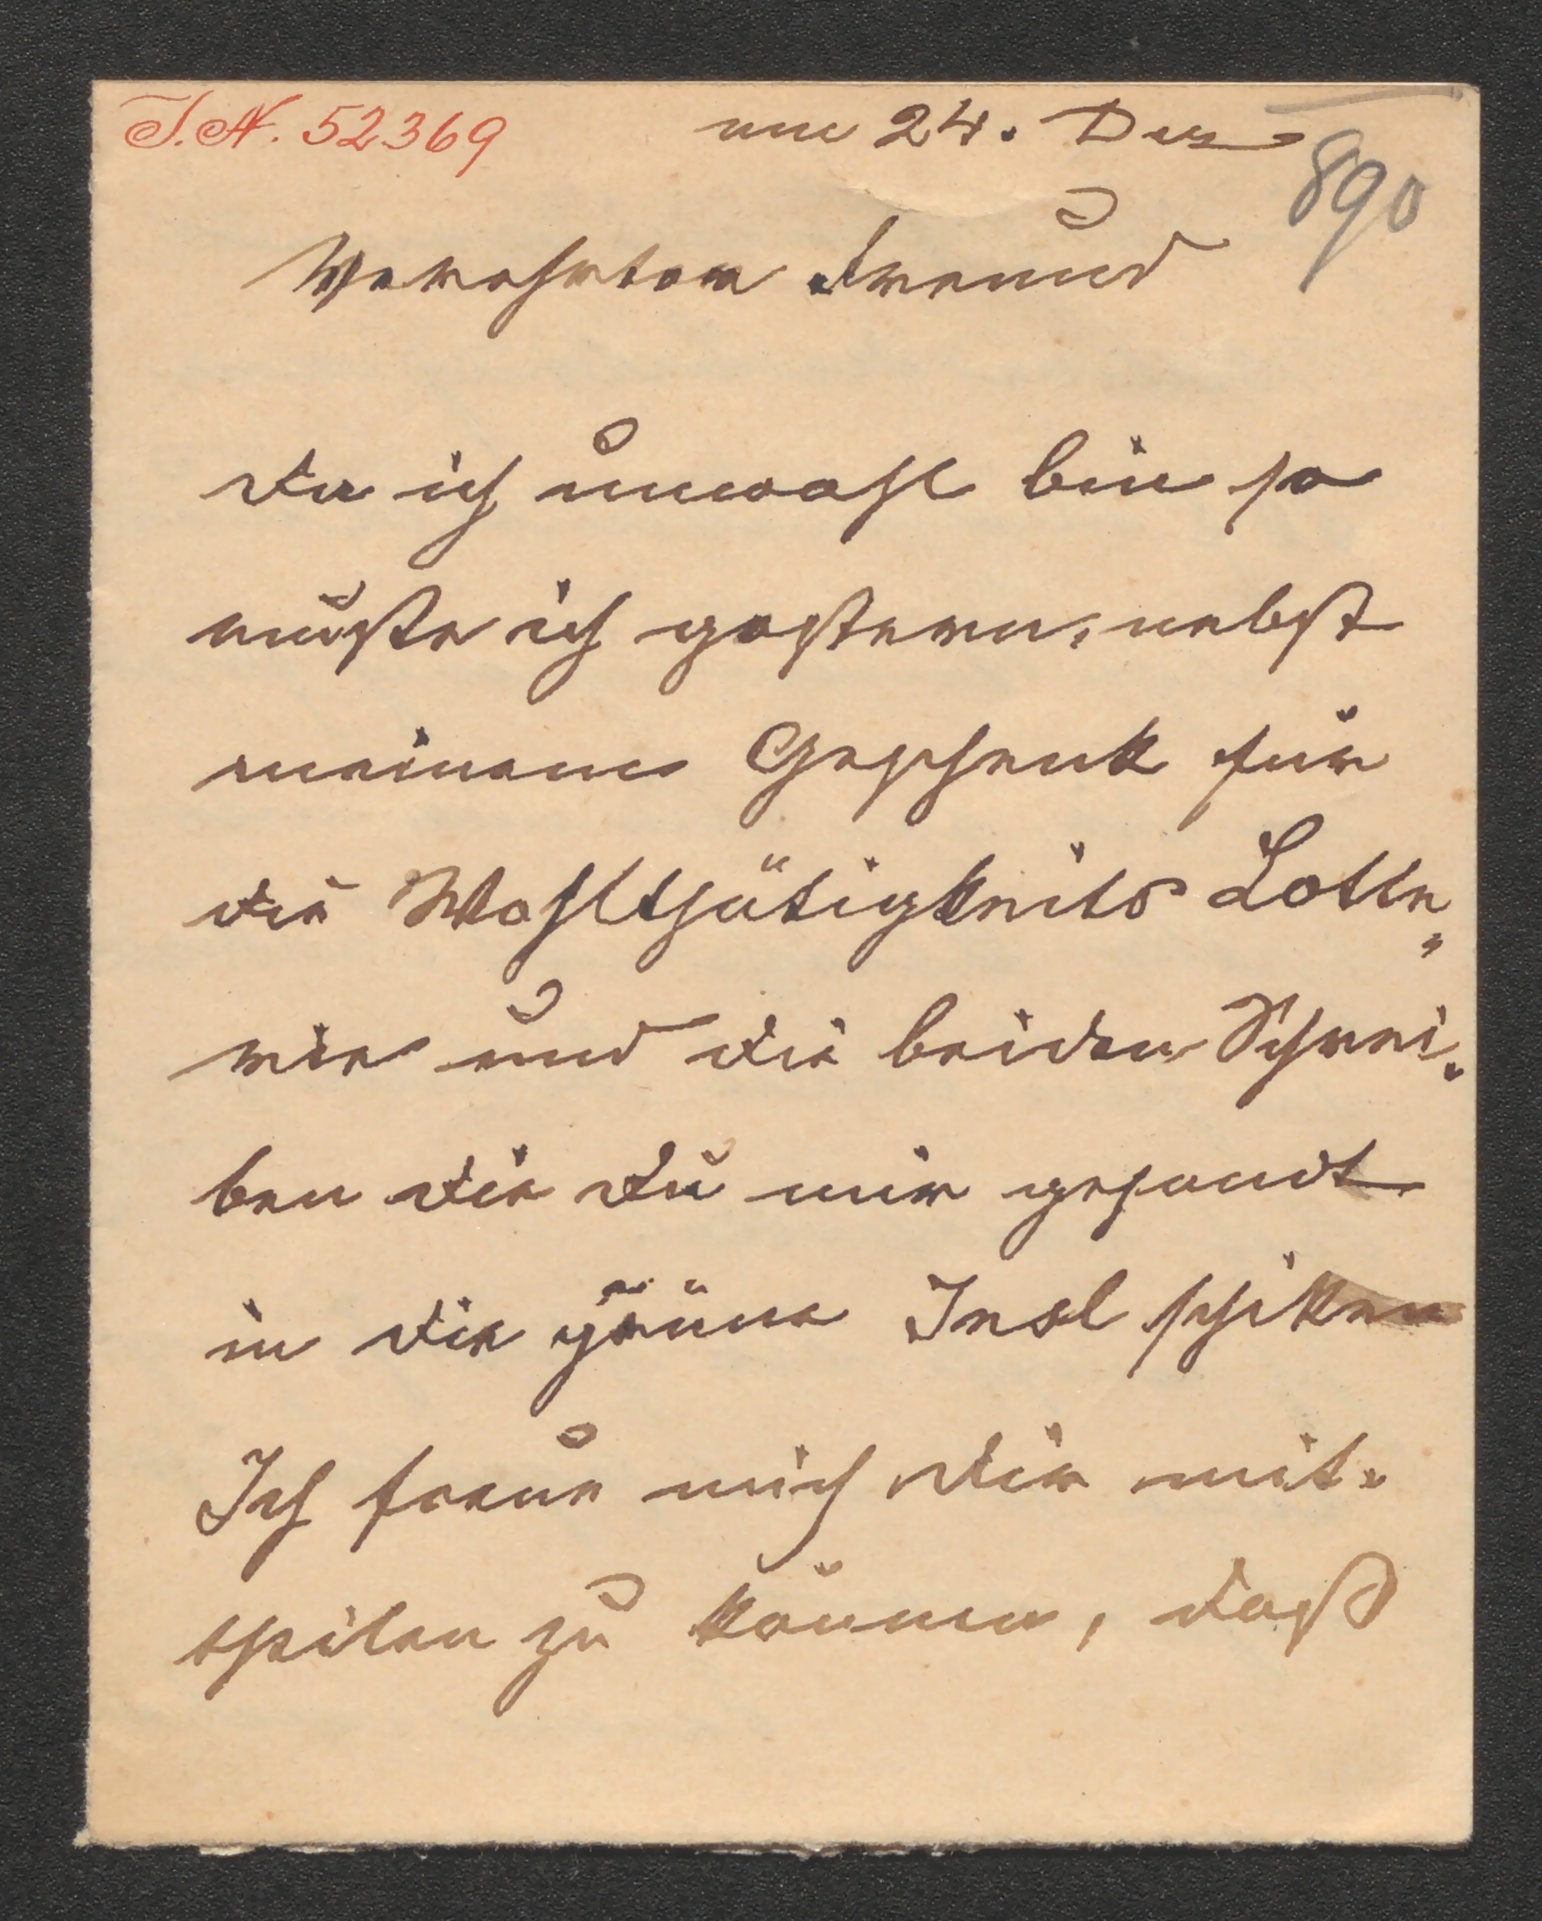 I.N. 52369
am 24. Dez
890
Verehrter Freund
Da ich unwohl bin so
mußte ich gestern, nebst
meinem Geschenk für
die Wohlthätigkeits Lotte„
rie und die beiden Schrei„
ben die Du mir gesandt
in die grüne Insel schiken
Ich freue mich Dir mit„
theilen zu können, daß